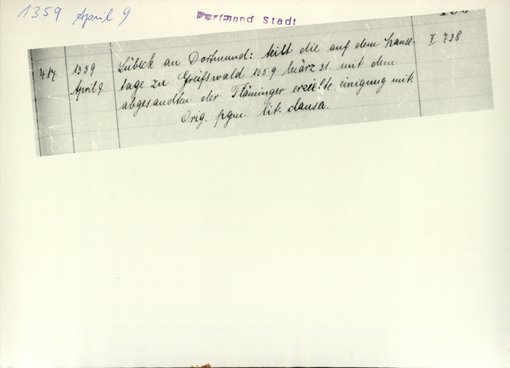 1359 April 9
Dortmund Stadt
417
1359
April 9
Lübeck an Dortmund: teilt die auf dem hanse-
tage zu Greifswald 1359 März 31. mit dem
abgesandten der Fläminger erzielte einigung mit.
Orig. pgm. lit. clausa.
I 738